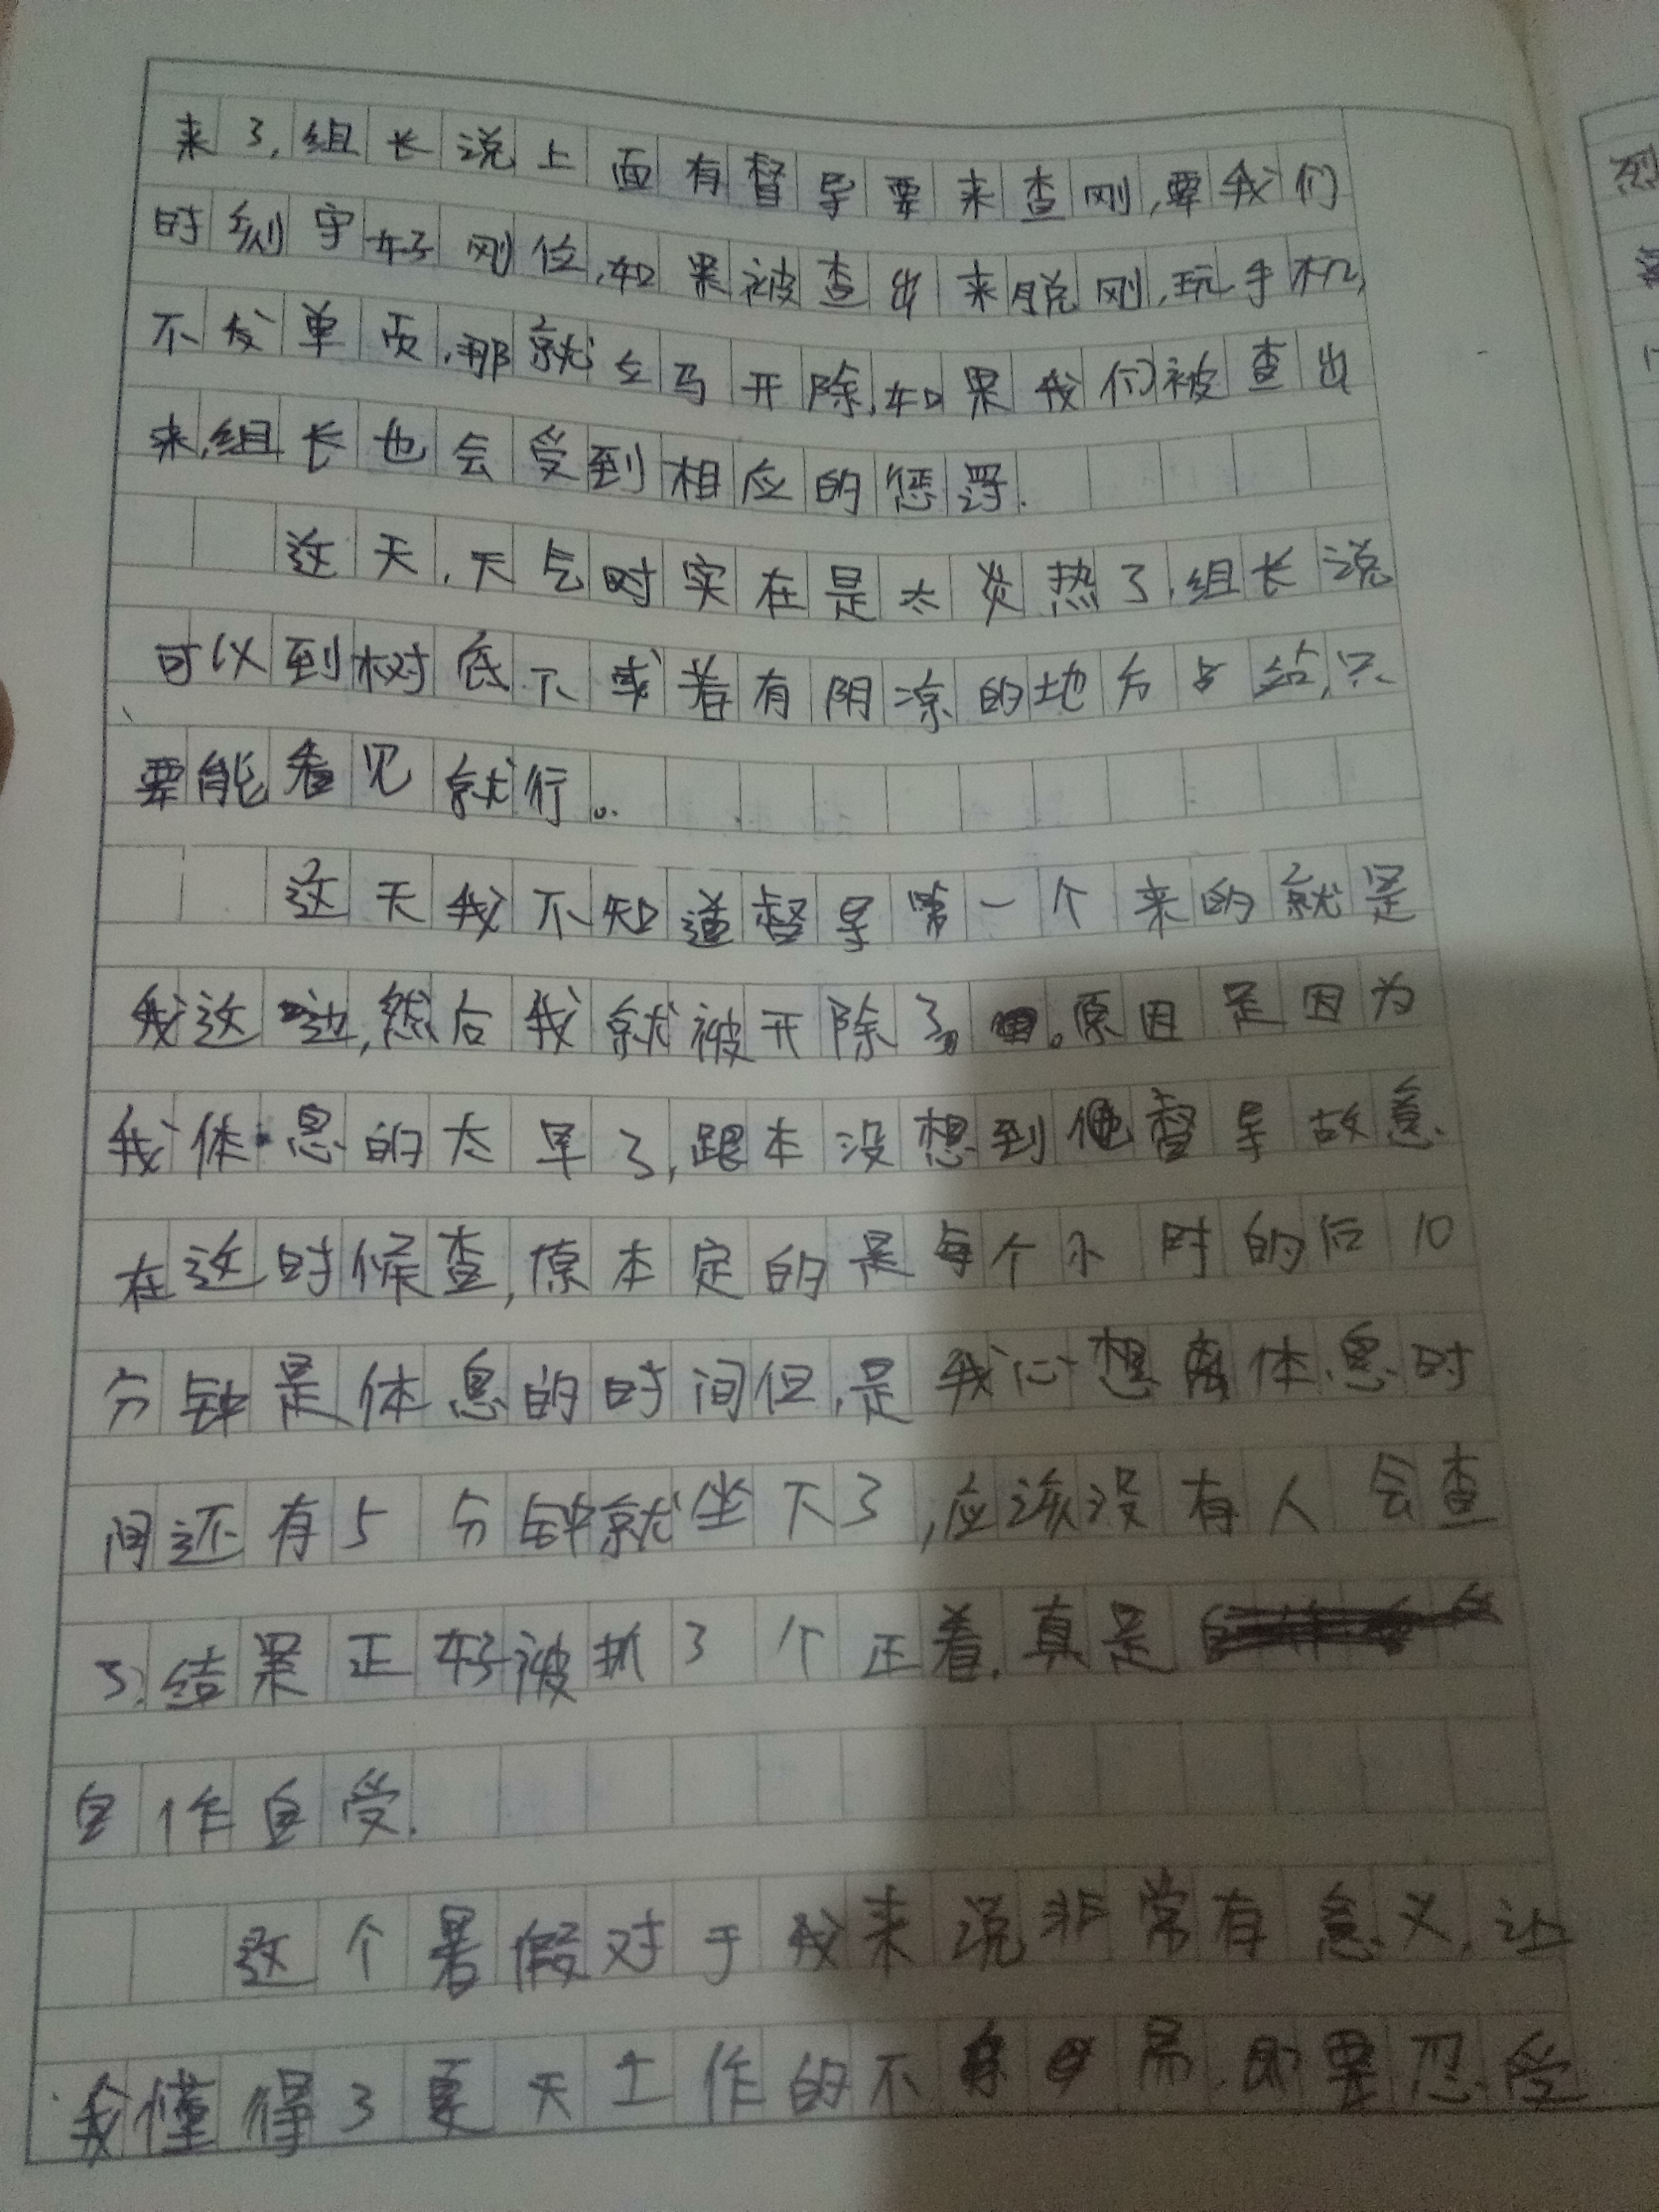 来了,组长说上面有督导要来查刚,要我们
时刻守好刚位,如果被查出来脱刚,玩手机,
不发单页,那就立马开除,如果我们被查出
来,组长也会受到相应的惩罚.
这天,天气时实在是太炎热了,组长说
可以到树底下或着有阴凉的地方占站,只
要能看见就行。
这天我不知道督导第一个来的就是
我这边,然后我就被开除了。原因是因为
我休息的太早了,跟本没想到他督导故意
在这时候查,原本定的是每个小时的后10
分钟是休息的时间但,是我心想离休息时
间还有5分钟就坐下了,应该没有人会查
了.结果正好被抓了个正着.真是
自作自受.
这个暑假对于我来说非常有意义,让
我懂得了夏天工作的不易,即要忍受